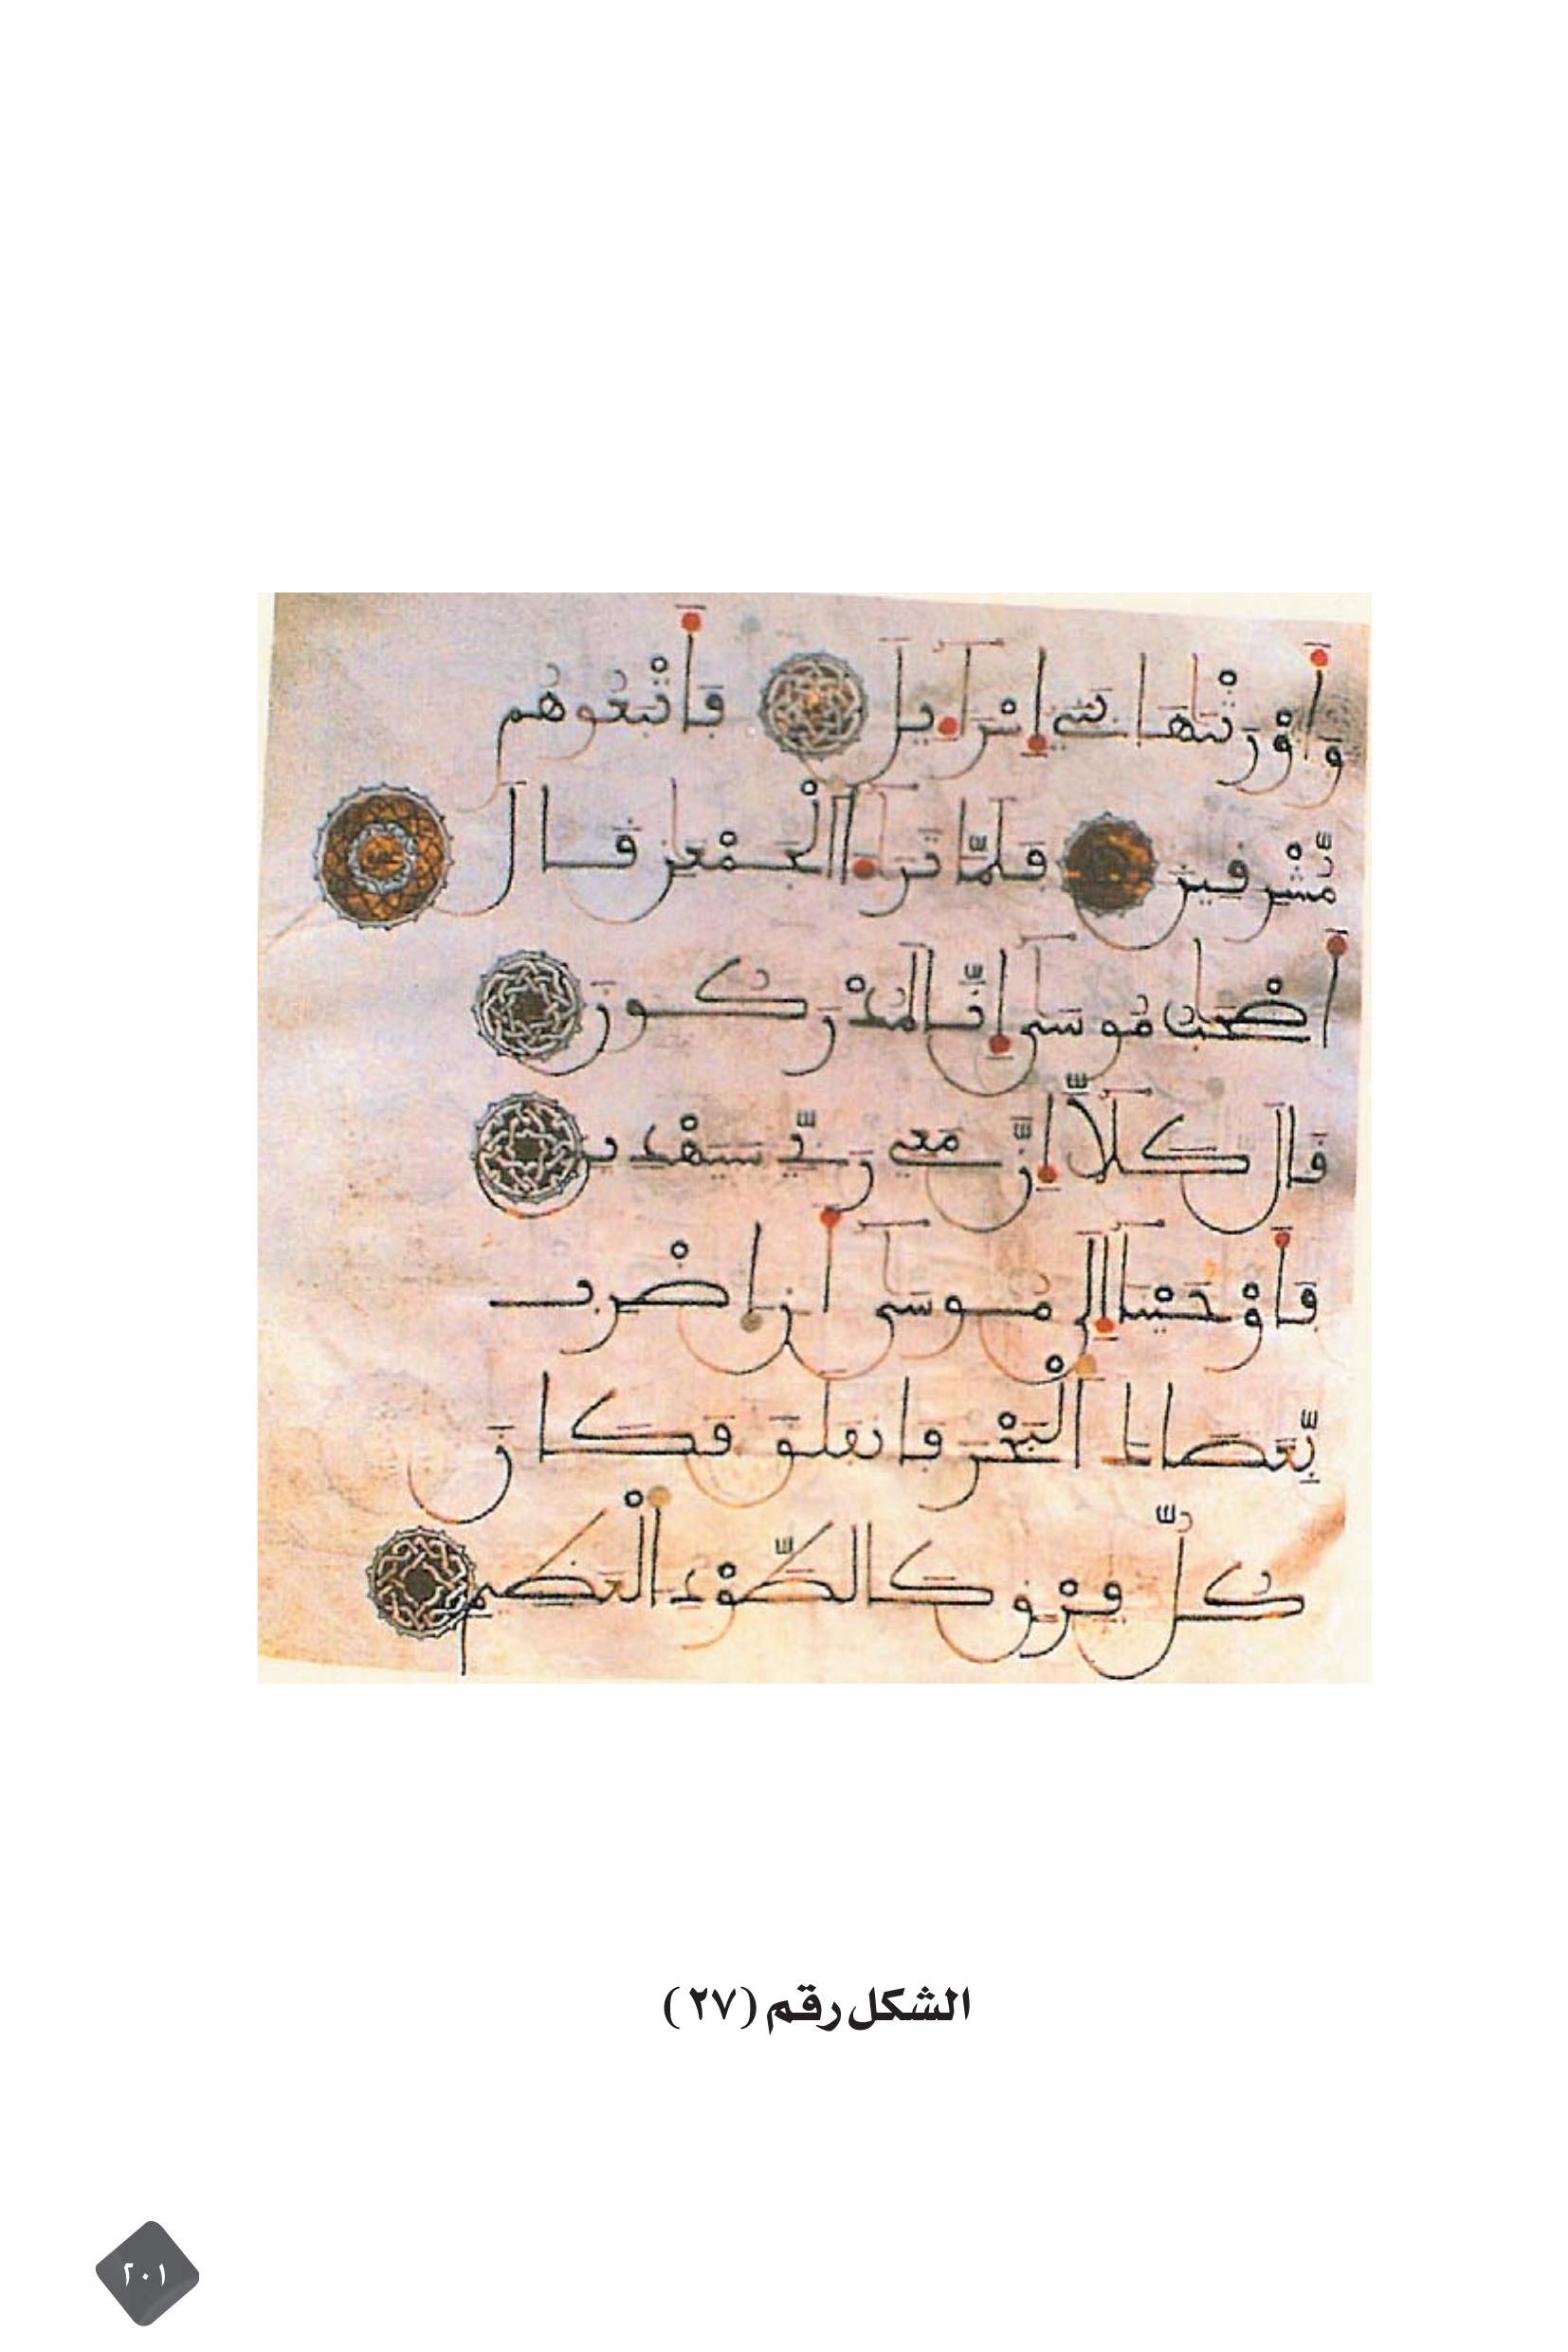 وَأَوْرَثْنَاهَا بَنِي إِسْرَاءِيلَ فَأَتْبَعُوهُم
مُّشْرِقِينَ فَلَمَّا تَرَاءَا الْجَمْعَانِ قَالَ
أَصْحَابُ مُوسَى إِنَّا لَمُدْرَكُونَ
قَالَ كَلَّا إِنَّ مَعِي رَبِّي سَيَهْدِينِ
فَأَوْحَيْنَا إِلَى مُوسَى أَنِ اضْرِب
بِّعَصَاكَ الْبَحْرَ فَانفَلَقَ فَكَانَ
كُلُّ فِرْقٍ كَالطَّوْدِ الْعَظِيمِ
الشكل رقم (٢٧)
٢٠١